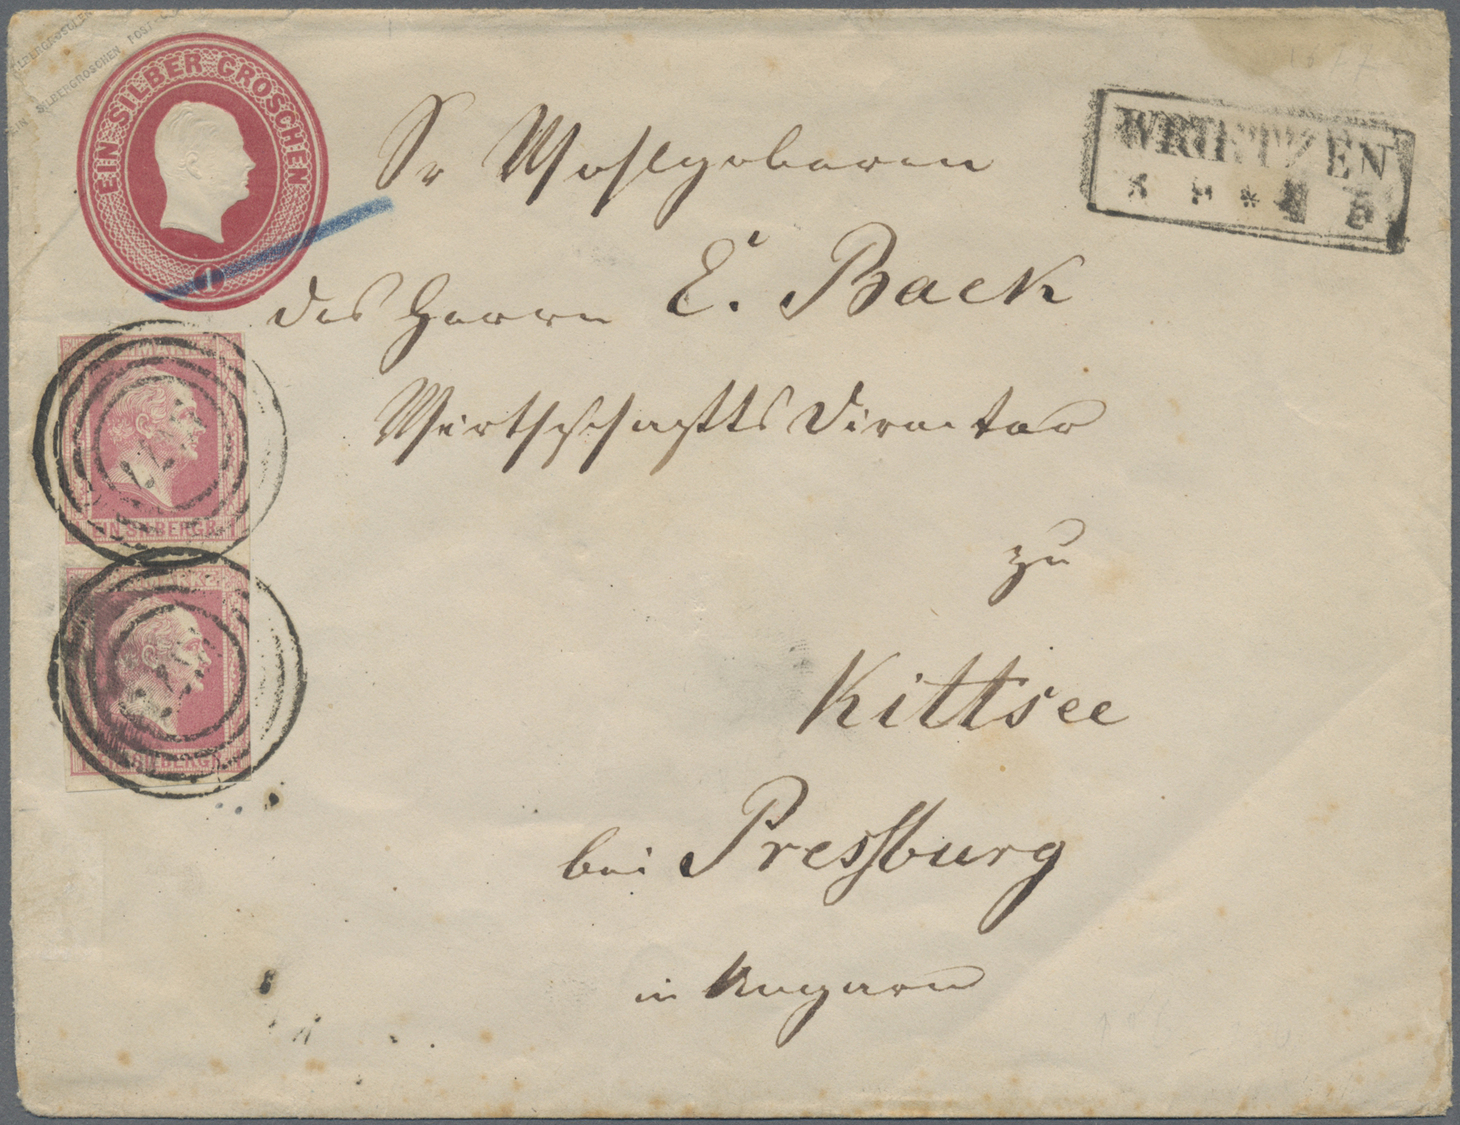 EIN SILBERGROSCHEN POST
EIN SILBER GROSCHEN
1
WRIETZEN
Sr Wohlgeboren
des Herrn E. Back
Wirthschaftts Director
zu
Kittsee
bei Pressburg
in Ungarn
EIN SILBERGR.
EIN SILBERGR.